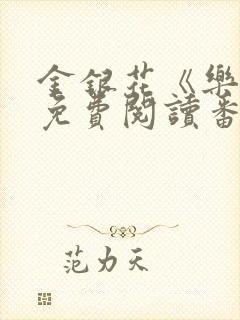 金銀花《樂
免費閱讀番
范力天